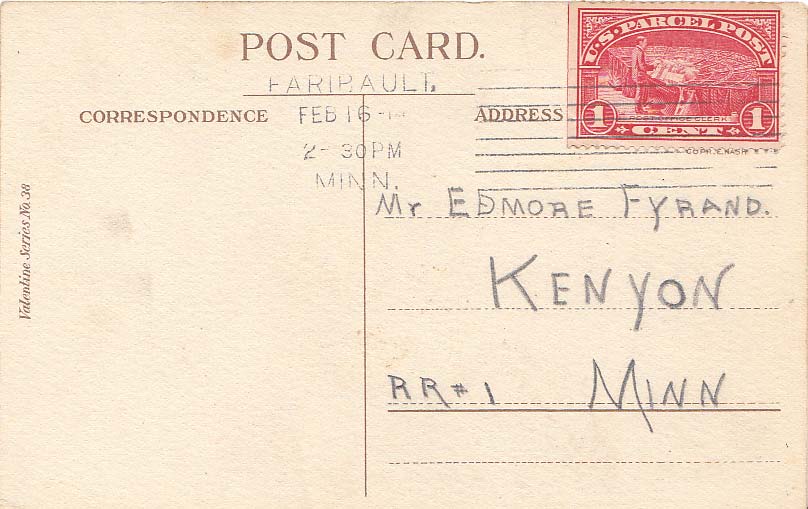 POST CARD.
FARIBAULT.
FEB 16
2-30PM
MINN.
CORRESPONDENCE
ADDRESS
U.S. PARCEL POST
1 1
POST OFFICE CLERK
CENT
Valentine Series No. 38
Mr EDMORE FYRAND.
KENYON
RR#1 MINN